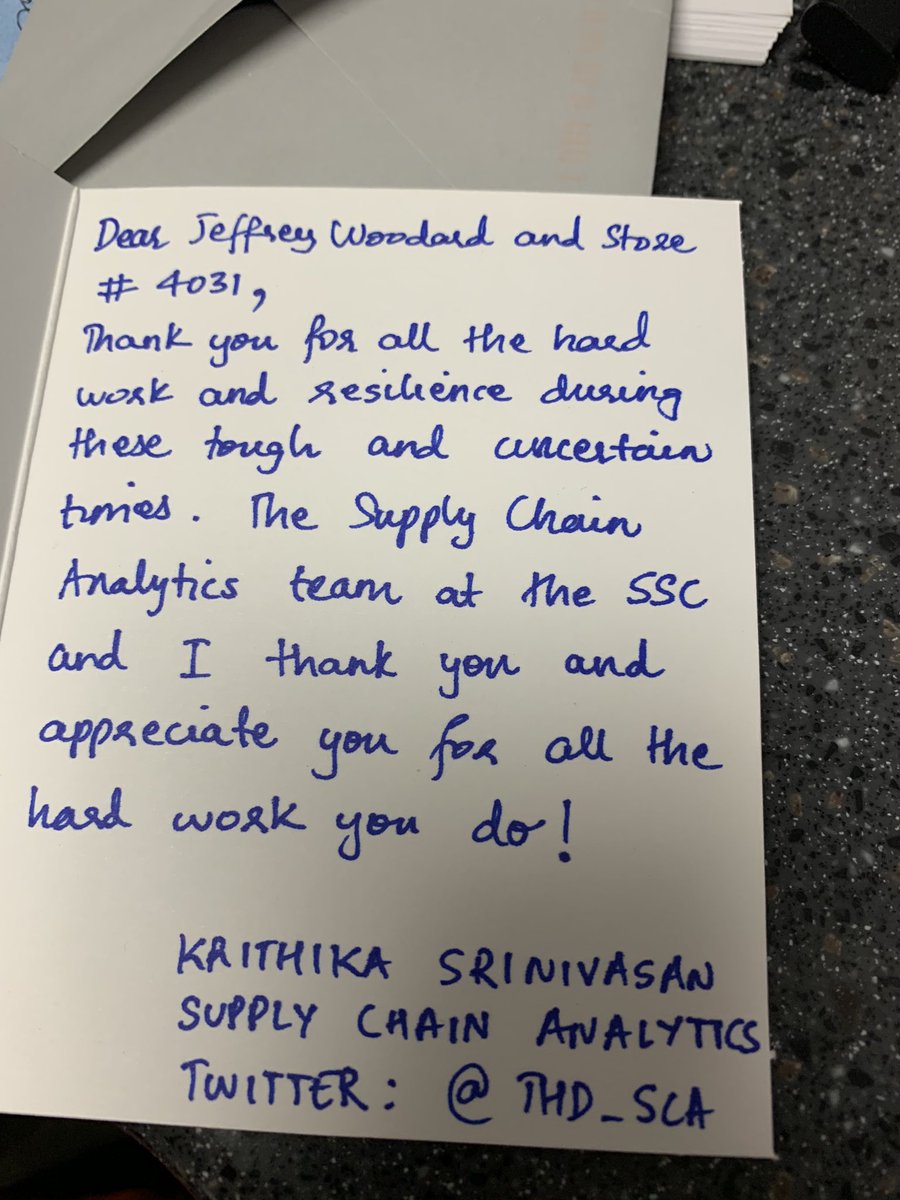 Dear Jeffrey Woodard and Store
# 4031,
Thank you for all the hard
work and resilience during
these tough and uncertain
times. The Supply Chain
Analytics team at the SSC
and I thank you and
appreciate you for all the
hard work you do!
KRITHIKA SRINIVASAN
SUPPLY CHAIN ANALYTICS
TWITTER: @THD_SCA